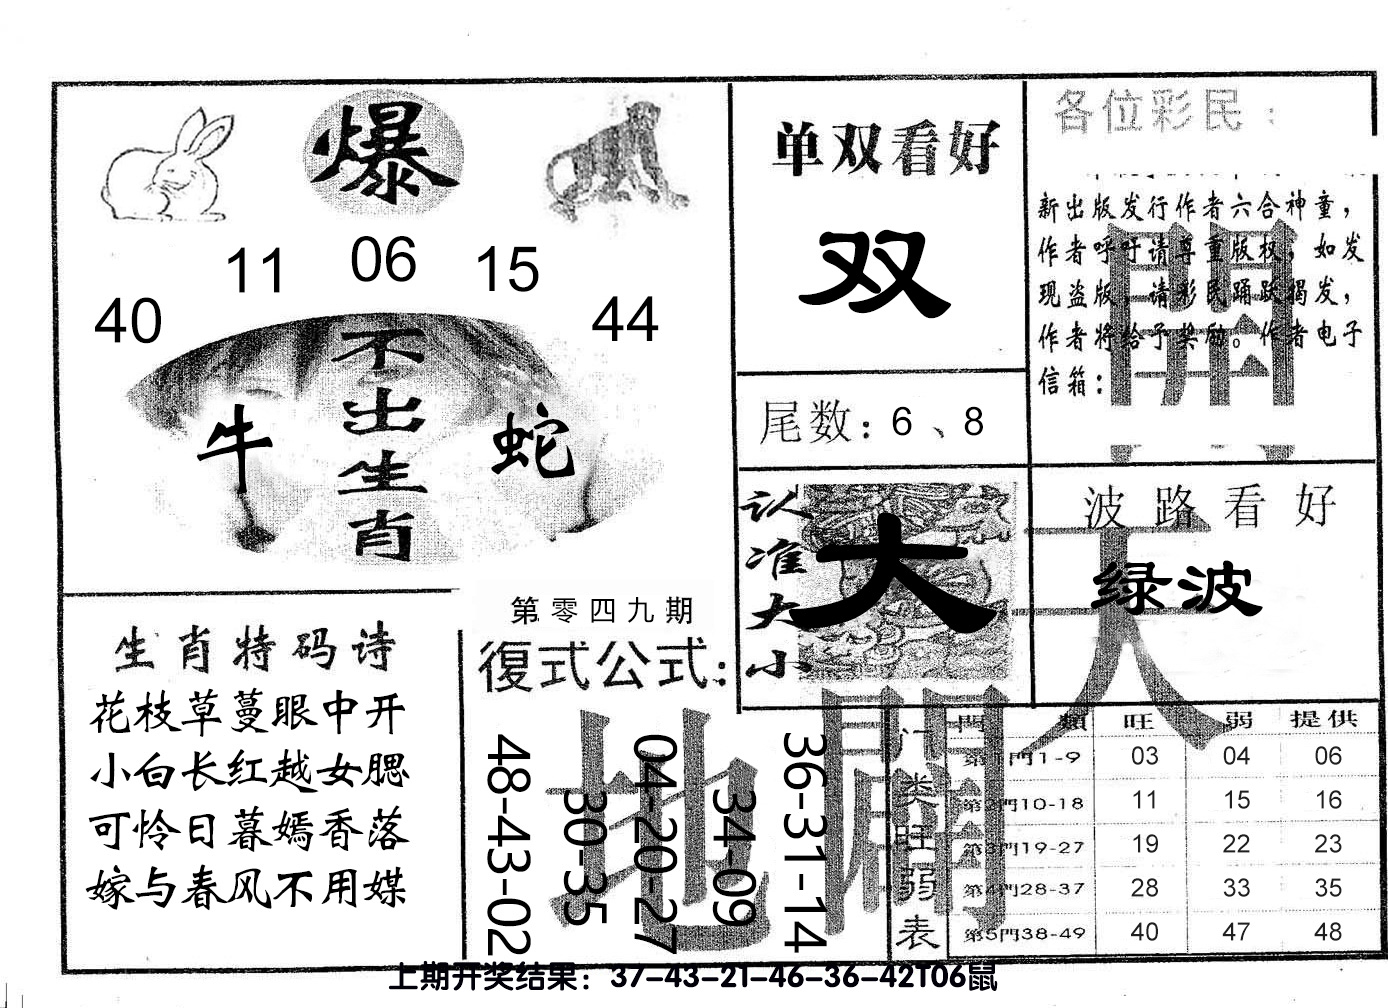 爆
11 06 15
40 44
不出生肖
牛 蛇
单双看好
双
尾数：6、8
各位彩民：
新出版发行作者六合神童，
作者呼吁请尊重版权，如发
现盗版，请彩民踊跃揭发，
作者将给予奖励。作者电子
信箱：
開
认准大小
大
波路看好
绿波
天
生肖特码诗
花枝草蔓眼中开
小白长红越女腮
可怜日暮嫣香落
嫁与春风不用媒
第零四九期
復式公式：
48-43-02
30-35
04-20-27
34-09
36-31-14
地
门类旺弱表
門 類 旺 弱 提供
第1門1-9 03 04 06
第2門10-18 11 15 16
第3門19-27 19 22 23
第4門28-37 28 33 35
第5門38-49 40 47 48
上期开奖结果：37-43-21-46-36-42T06鼠